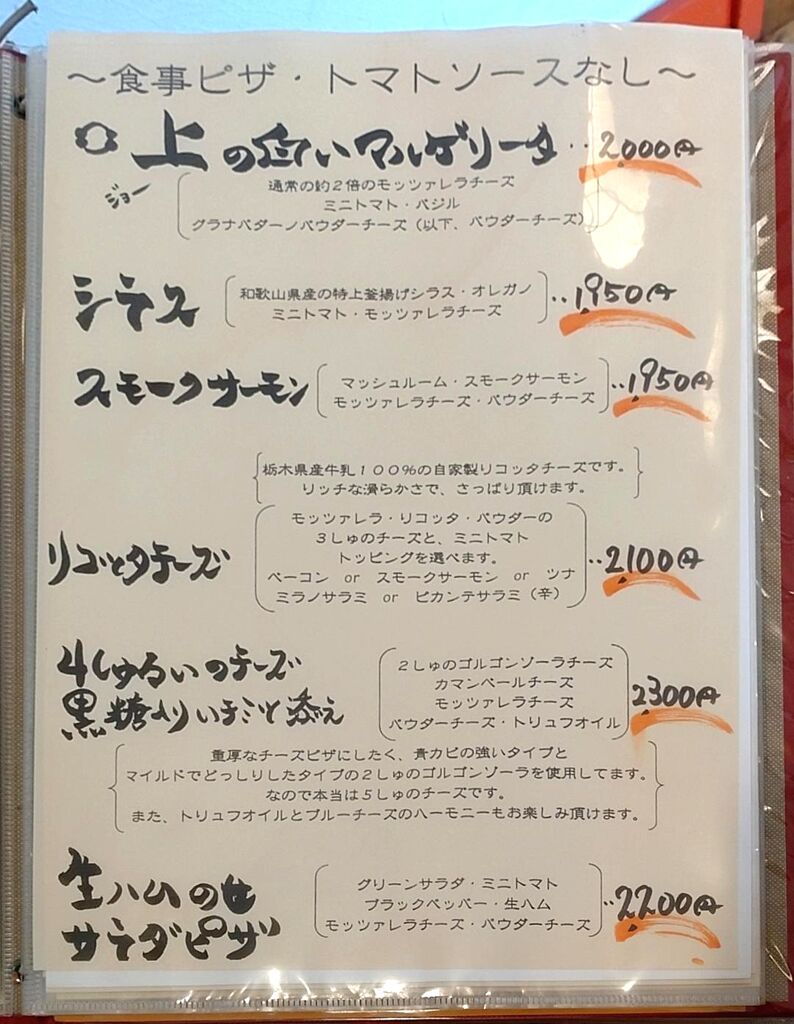 〜食事ピザ・トマトソースなし〜
上の白いマルゲリータ‥2000円
ジョー
通常の約2倍のモッツァレラチーズ
ミニトマト・バジル
グラナパダーノパウダーチーズ(以下、パウダーチーズ)
シラス
和歌山県産の特上釜揚げシラス・オレガノ
ミニトマト・モッツァレラチーズ
‥1950円
スモークサーモン
マッシュルーム・スモークサーモン
モッツァレラチーズ・パウダーチーズ
‥1950円
栃木県産牛乳100%の自家製リコッタチーズです。
リッチな滑らかさで、さっぱり頂けます。
リコッタチーズ
モッツァレラ・リコッタ・パウダーの
3しゅのチーズと、ミニトマト
トッピングを選べます。
ベーコン or スモークサーモン or ツナ
ミラノサラミ or ピカンテサラミ(辛)
‥2100円
4しゅるいのチーズ
黒糖よりハチミツ添え
2しゅのゴルゴンゾーラチーズ
カマンベールチーズ
モッツァレラチーズ
パウダーチーズ・トリュフオイル
2300円
重厚なチーズピザにしたく、青カビの強いタイプと
マイルドでどっしりしたタイプの2しゅのゴルゴンゾーラを使用してます。
なので本当は5しゅのチーズです。
また、トリュフオイルとブルーチーズのハーモニーもお楽しみ頂けます。
生ハムの
サラダピザ
グリーンサラダ・ミニトマト
ブラックペッパー・生ハム
モッツァレラチーズ・パウダーチーズ
‥2200円